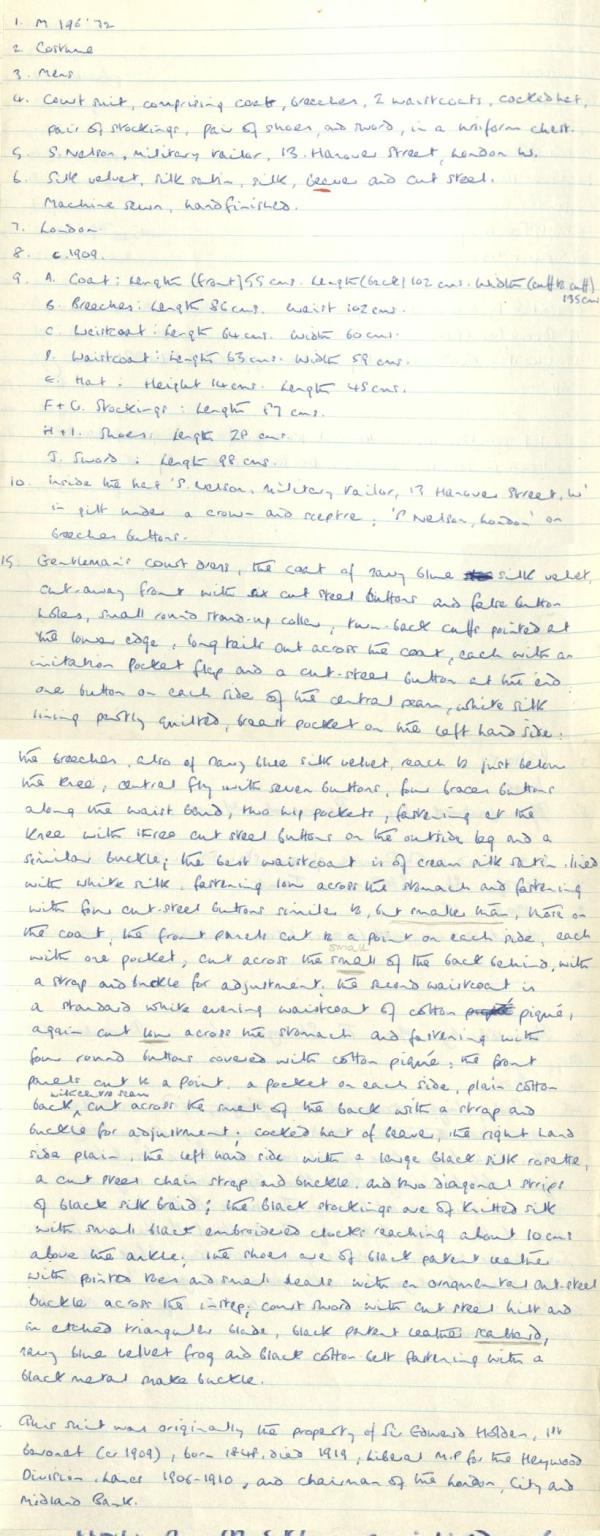 1. M 196'72
2. Costume
3. Mens
4. Court suit, comprising coat, breeches, 2 waistcoats, cocked hat,
pair of stockings, pair of shoes, and sword, in a uniform chest.
5. S. Nelson, Military Tailor, 13 Hanover Street, London W.
6. Silk velvet, silk satin, silk, beaver and cut steel.
Machine sewn, hand finished.
7. London.
8. c.1909.
9. A. Coat: Length (front) 55 cms. Length (back) 102 cms. Width (cuff to cuff)
135 cms
B. Breeches: Length 86 cms. Waist 102 cms.
C. Waistcoat: Length 64 cms. Width 60 cms.
D. Waistcoat: Length 63 cms. Width 59 cms.
E. Hat: Height 14 cms. Length 45 cms.
F+G. Stockings: Length 87 cms.
H+I. Shoes: Length 28 cms.
J. Sword: Length 98 cms.
10. Inside the hat 'S. Nelson, Military Tailor, 13 Hanover Street, W'
in gilt under a crown and sceptre; 'S Nelson, London' on
breeches buttons.
15. Gentleman's court dress, the coat of navy blue silk velvet,
cut-away front with six cut steel buttons and false button
holes, small round stand-up collar, turn-back cuffs pointed at
the lower edge, long tails cut across the coat, each with an
imitation pocket flap and a cut-steel button at the end
one button on each side of the central seam, white silk
lining partly quilted, breast pocket on the left hand side;
the breeches, also of navy blue silk velvet, reach to just below
the knee, central fly with seven buttons, four braces buttons
along the waist band, two hip pockets, fastening at the
knee with three cut steel buttons on the outside leg and a
similar buckle; the best waistcoat is of cream silk satin lined
with white silk, fastening low across the stomach and fastening
with four cut-steel buttons similar to, but smaller than, those on
the coat, the front panels cut to a point on each side, each
small
with one pocket, cut across the small of the back behind, with
a strap and buckle for adjustment; the second waistcoat is
a standard white evening waistcoat of cotton piqué,
again cut low across the stomach and fastening with
four round buttons covered with cotton piqué; the front
panels cut to a point, a pocket on each side, plain cotton
with centre seam
back, cut across the small of the back with a strap and
buckle for adjustment; cocked hat of beaver, the right hand
side plain, the left hand side with a large black silk rosette,
a cut steel chain strap and buckle, and two diagonal strips
of black silk braid; the black stockings are of knitted silk
with small black embroidered clocks reaching about 10 cms
above the ankle; the shoes are of black patent leather
with pointed toes and small heals with an ornamental cut-steel
buckle across the instep; court sword with cut steel hilt and
an etched triangular blade, black patent leather scabbard,
navy blue velvet frog and black cotton belt fastening with a
black metal snake buckle.
This suit was originally the property of Sir Edward Holden, 1st
baronet (cr 1909), born 1848, died 1919, Liberal M.P for the Heywood
Division, Lancs 1906-1910, and chairman of the London, City and
Midland Bank.